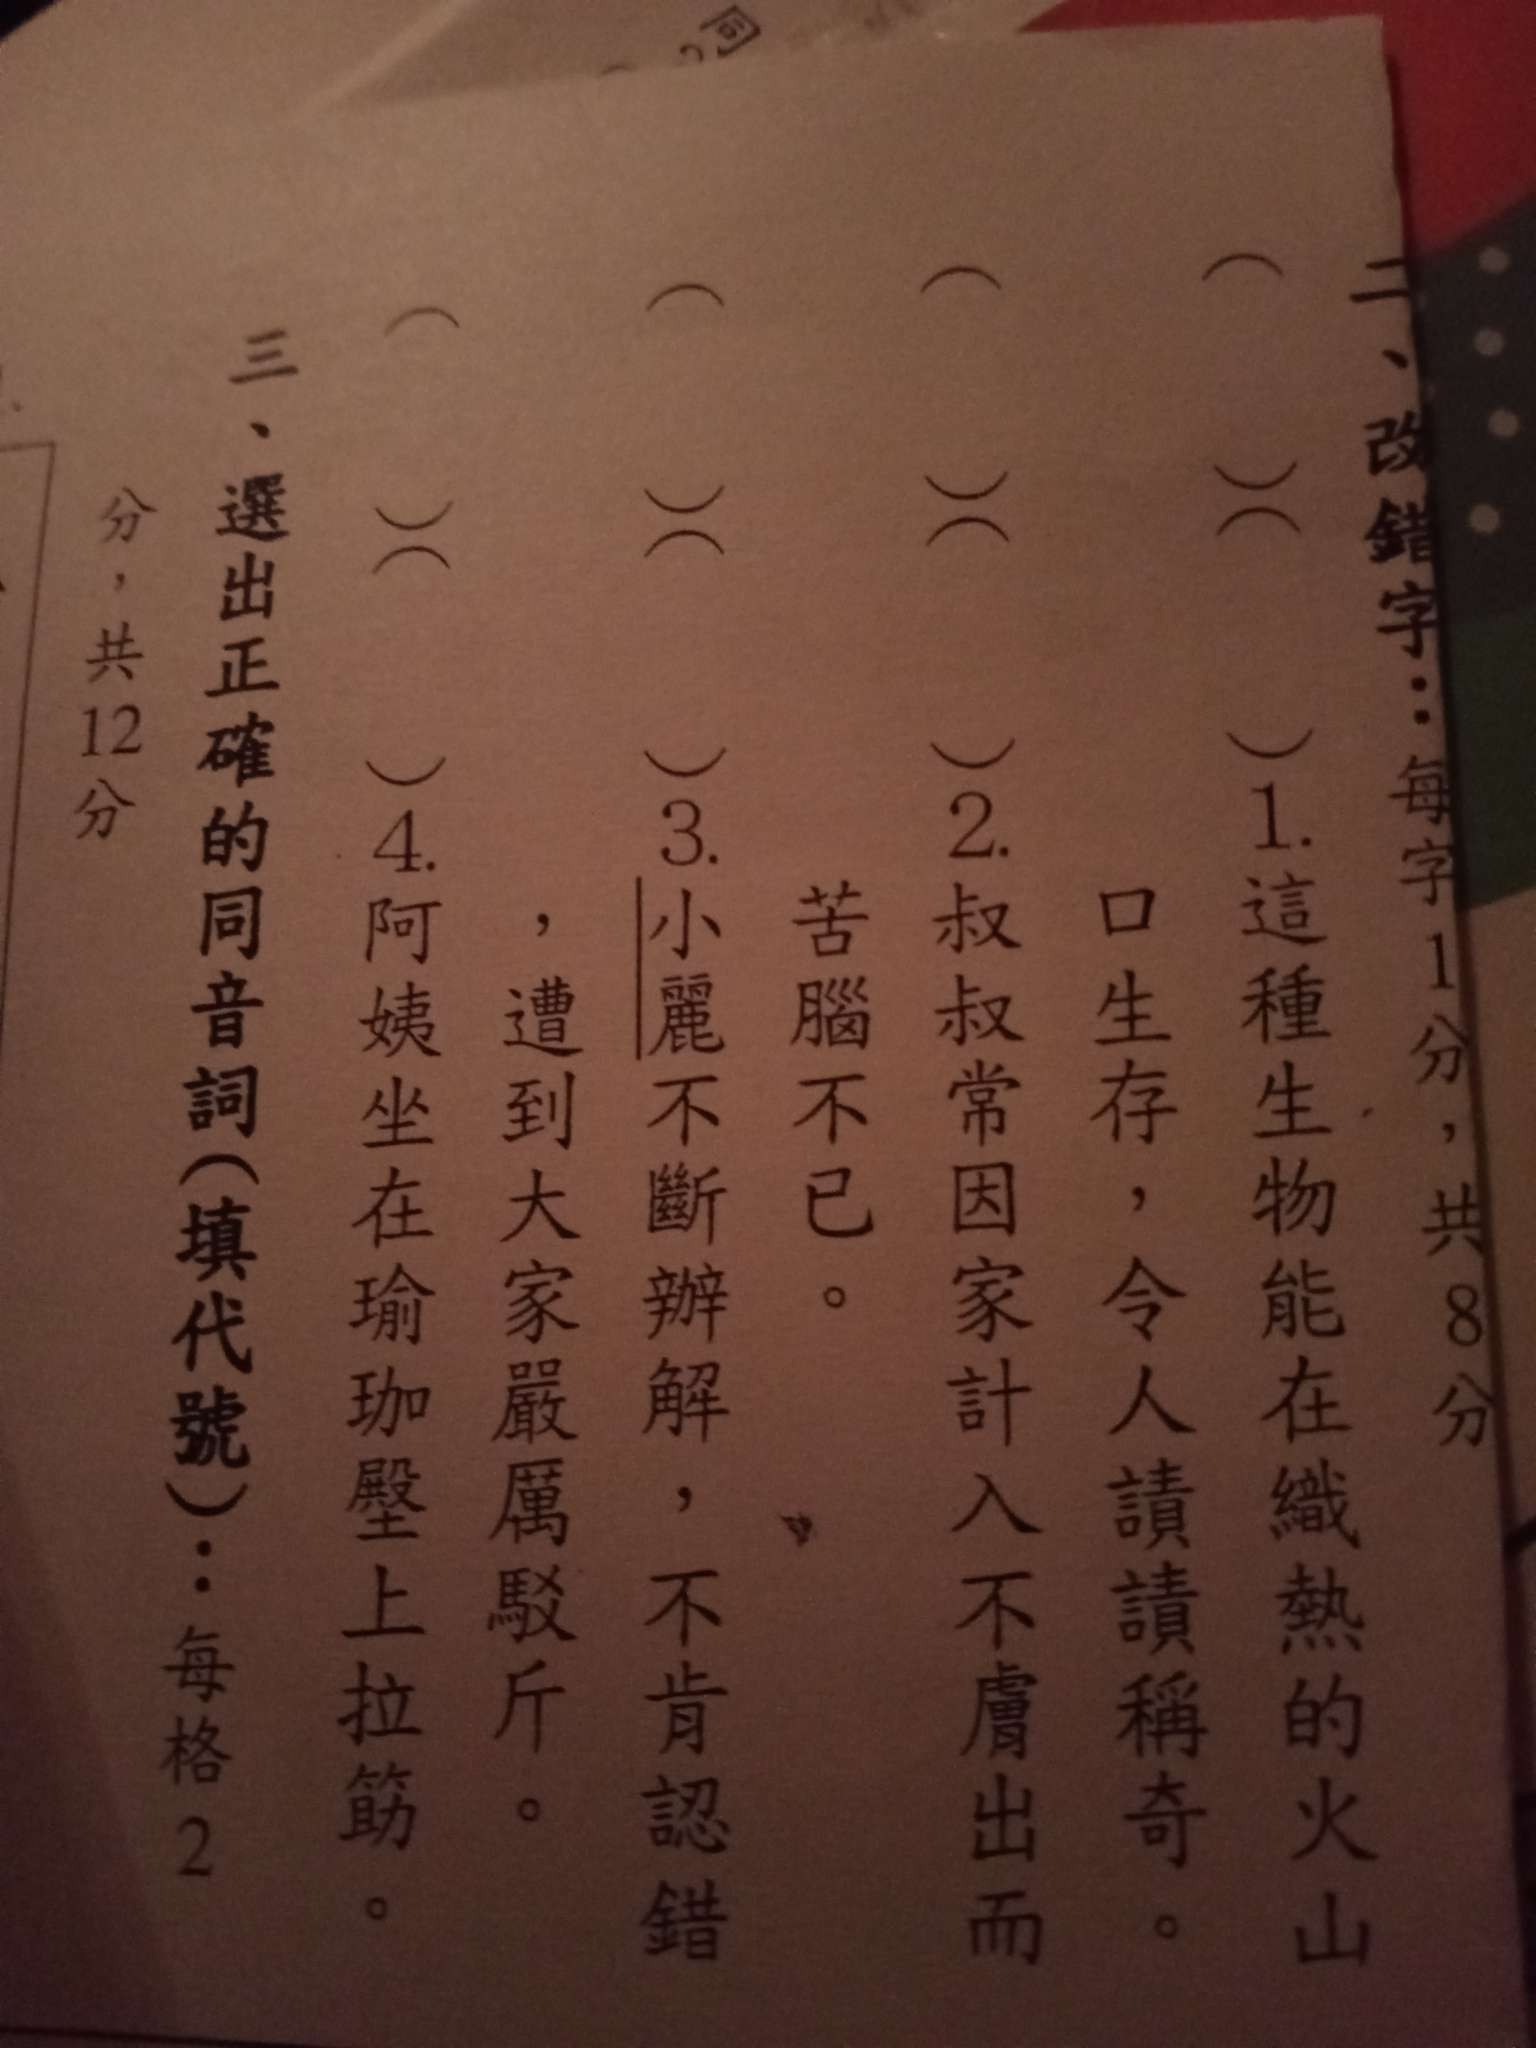 二、改錯字：每字1分，共8分
（　）（　）1.這種生物能在織熱的火山
口生存，令人讀讀稱奇。
（　）（　）2.叔叔常因家計入不膚出而
苦腦不已。
（　）（　）3.小麗不斷辦解，不肯認錯
，遭到大家嚴厲駁斤。
（　）（　）4.阿姨坐在瑜珈壂上拉筯。
三、選出正確的同音詞(填代號)：每格2
分，共12分